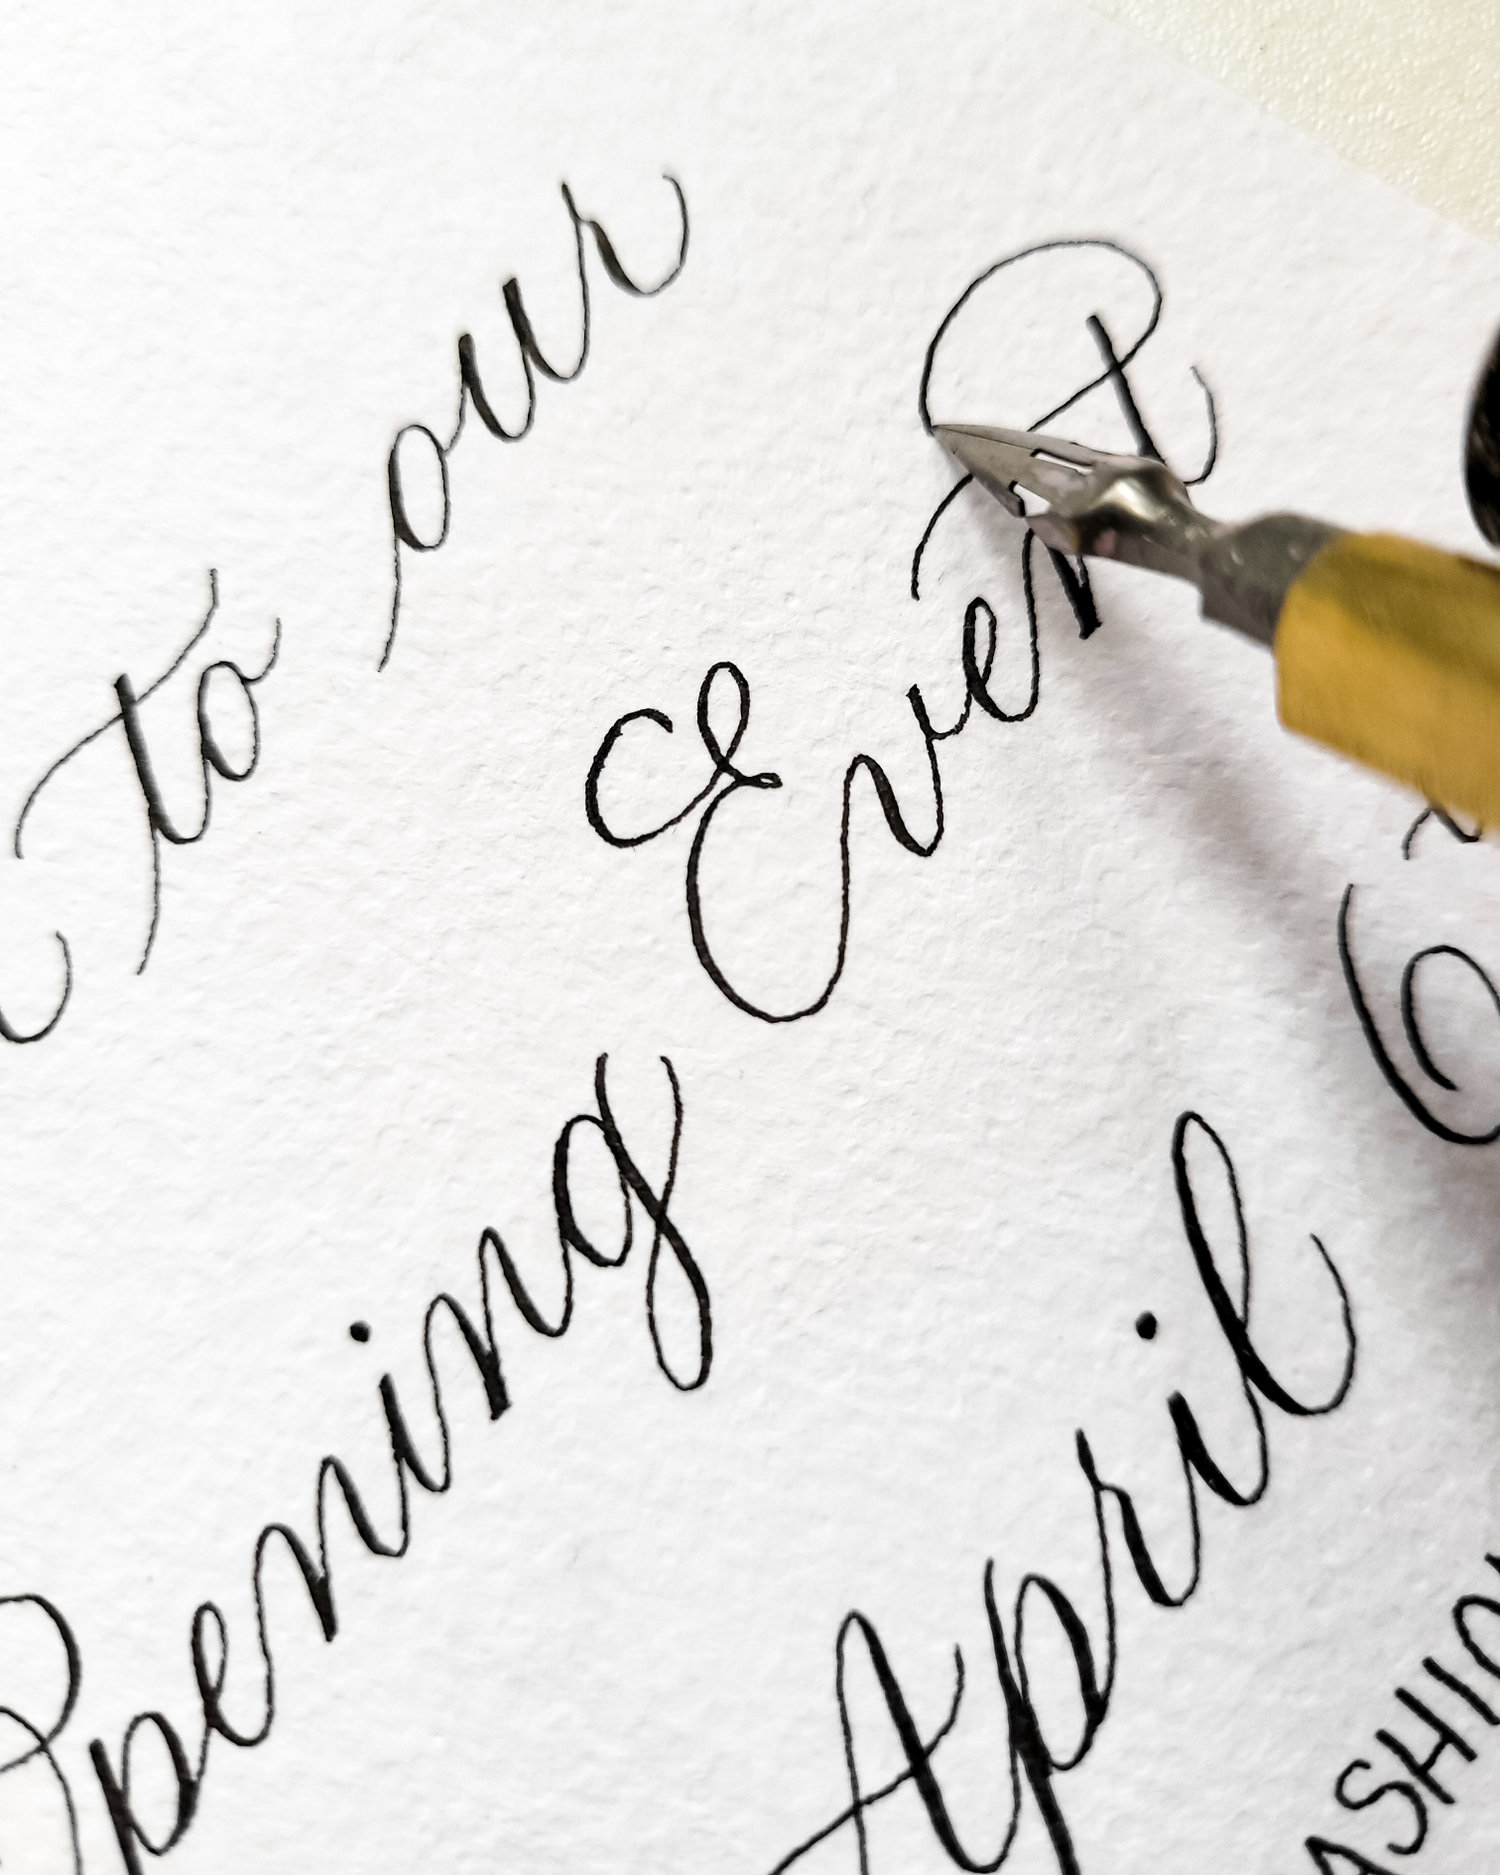 to our
Opening Event
April 6th